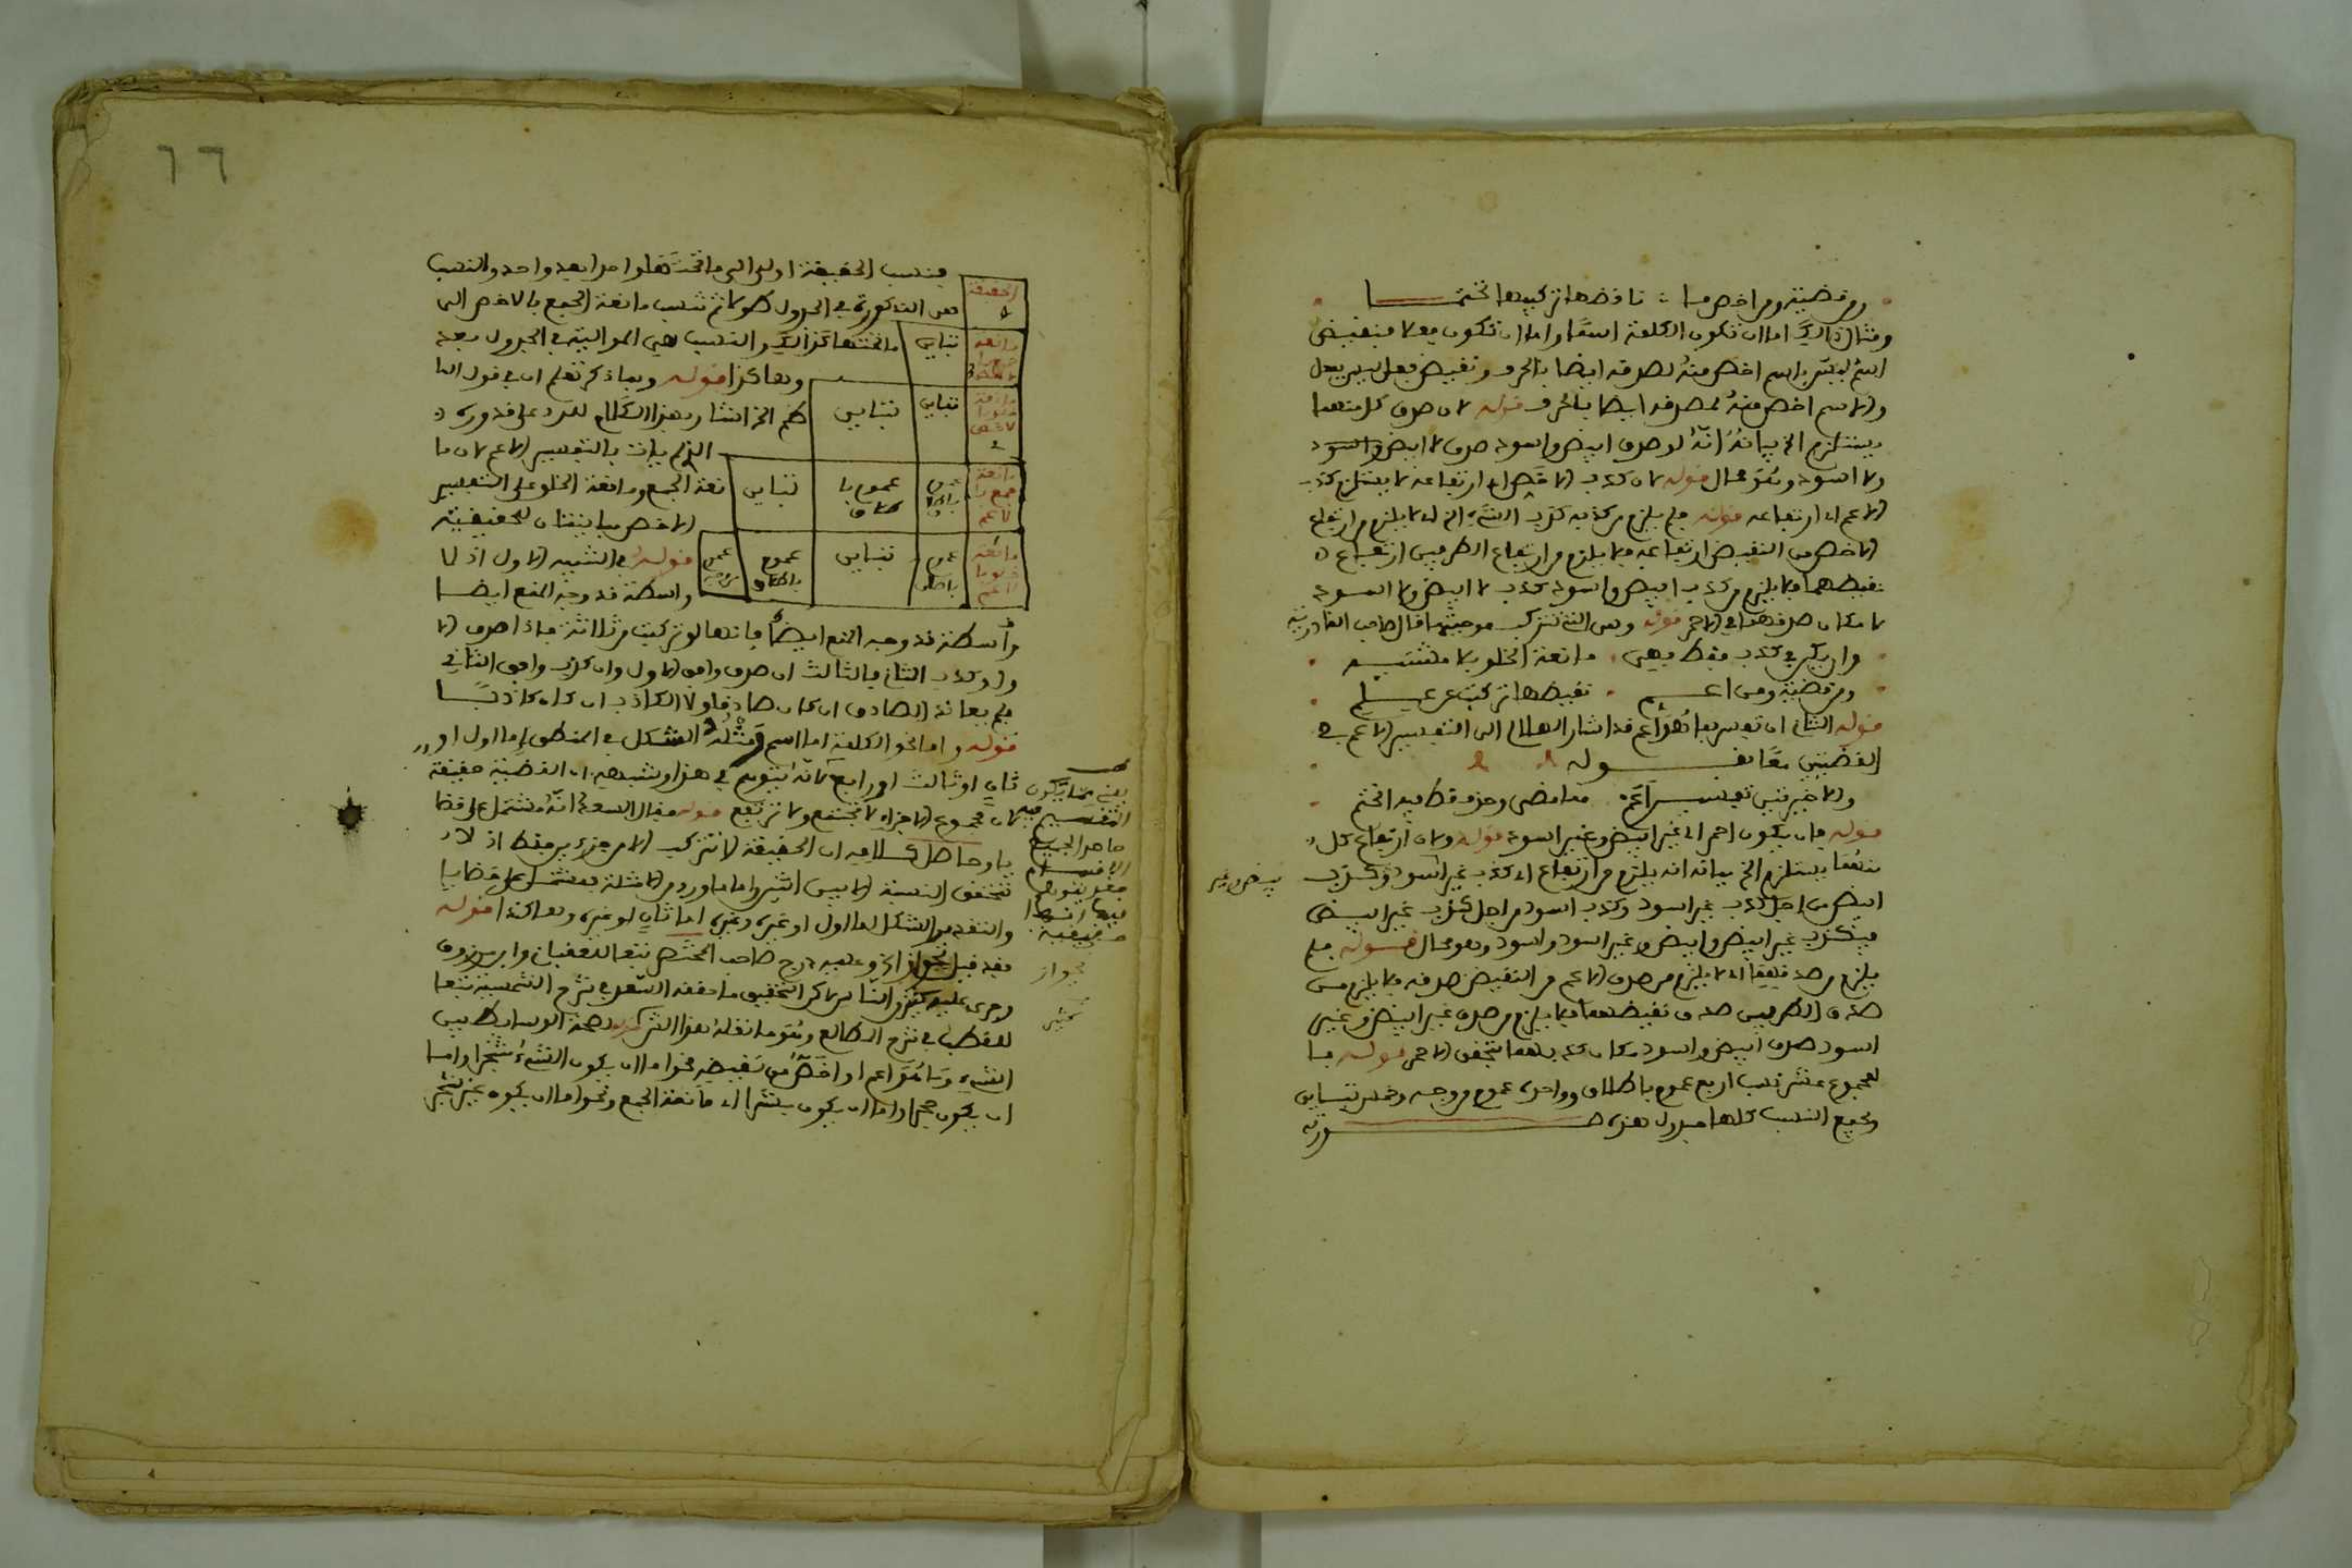 ومن قضية ومن اخص ما : ناقضها تركيبها تحتما
ومثال ذلك اما ان تكون الكلمة اسما واما ان تكون فعلا فنقيض
اسم ليس باسم اخص منه لصدقه ايضا بالحرف ونقيض فعل ليس بفعل
والاسم اخص منه لصدقه ايضا بالحرف قوله لان صدق كل منهما
يستلزم الخ بيانه انه لو صدق ابيض واسود صدق لا ابيض واسود
ولا اسود وهو محال قوله لان كذب الاخص اي ارتفاعه لا يستلزم كذب
الاعم اي ارتفاعه قوله فلم يلزم من كذبه كذب الشيء الخ اي لا يلزم من ارتفاع
الاخص من النقيض ارتفاعه فلا يلزم من ارتفاع الطرفين ارتفاع
نقيضهما فلا يلزم من كذب ابيض واسود كذب لا ابيض ولا اسود
لامكان صدقهما في الاحمر قوله وهي التي تتركب موجبتها قال صاحب القادرية
وان يكن في كذب فقط فهي . مانعة الخلو بلا
ومن قضية ومن اعم . نقيضها تركبت عن علم
قوله الثاني ان تفسر بما هو اعم قد اشار الهلالي الى التفسير الاعم في
القضيتين معا بقوله
والاخيرتين تفسير اعم . معا مضى وحذف قط فيه انحتم
قوله فان يكون احمر اي غير ابيض وغير اسود قوله ولان ارتفاع كل
منهما يستلزم الخ بيانه انه يلزم من ارتفاع اي كذب غير اسود وكذب
ابيض من اجل كذب غير اسود وكذب اسود من اجل كذب غير ابيض
فيكذب غير ابيض وابيض وغير اسود واسود وهو محال قوله فلم
يلزم من صدقهما اي لا يلزم من صدق الاعم من النقيض صدقه فلا يلزم من
صدق الطرفين صدق نقيضهما فلا يلزم من صدق غير ابيض وغير
اسود صدق ابيض واسود مكان كذبهما بتحقق الاحمر قوله فا
لمجموع عشر نسب اربع عموم باطلاق وواحدة عموم من وجه وخمس تباين
وجمع النسب كلها جدول هذه صورته
٦٦
فنسب الحقيقة اولا الى ما تحتها واحدا بعد واحد والنسب
هي المذكورة في الجدول طولا ثم تنسب مانعة الجمع بالاخص الى
ما تحتها كذلك والنسب هي الموالية في الجدول بعد
وهكذا قوله وبما ذكر تعلم ان في قول النا
ظم الخ اشار بهذا الكلام للرد على قدورة
الذي يات بالتفسير الاعم لان ما
نعة الجمع ومانعة الخلو على التفسير
الاخص مباينتان للحقيقية
قوله في التنبيه الاول اذ لا
واسطة قد وجه المنع ايضا
الحقيقة
مانعة
تباين
مانعة
تباين
تباين
مانعة
جمع با
لاعم
عموم باطلاق
عموم با
طلاق
تباين
مانعة
خلو با
لاعم
عموم باطلاق
تباين
عموم
باطلاق
عموم من وجه
واسطة قد وجه المنع ايضا بانها لو تركبت من ثلاثة فاذا صدق الا
ول وكذب الثاني فالثالث ان صدق وافق الاول وان كذب وافق الثاني
فلم يعاند الصادق ان كان صادقا ولا الكاذب ان كان كاذبا
قوله واما نحو الكلمة اما اسم ومثله الشكل في المنطق اما اول او
ثان او ثالث او رابع لانه يتوهم في هذا وشبهه ان القضية حقيقة
لان مجموع الاجزاء لا تجتمع ولا ترتفع قوله فقال السعد انه مشتمل على قضا
يا وحاصل كلامه ان الحقيقة لا تتركب الا من جزءين فقط اذ لا
تتحقق النسبة الا بين اثنين واما ما ورد من الامثلة فمشتمل على قضايا
والتقدير الشكل اما اول او غيره وغيره اما ثان او غيره وهكذا قوله
فقد قيل بجواز الخ وعليه درج صاحب المختصر تبعا للعقباني وابن مرزوق
وجرى عليه كثير الناس لاكن التحقيق ما حققه السعد في شرح الشمسية تبعا
للقطب في شرح المطالع وهو ما نقله هذا الشرح قوله لصحة الوسايط بين
الشيء وما هو اعم او اخص من نقيضه نحو اما ان يكون الشيء شجرا واما
ان يكون حجرا واما ان يكون بشرا اي مانعة الجمع ونحو اما ان يكون غير شجر
يعني مما يكون
التقسيم فيه
حاصر الجميع
الاقسام
فقد يتوهم
فيها انها
حقيقية
بجواز
كثير